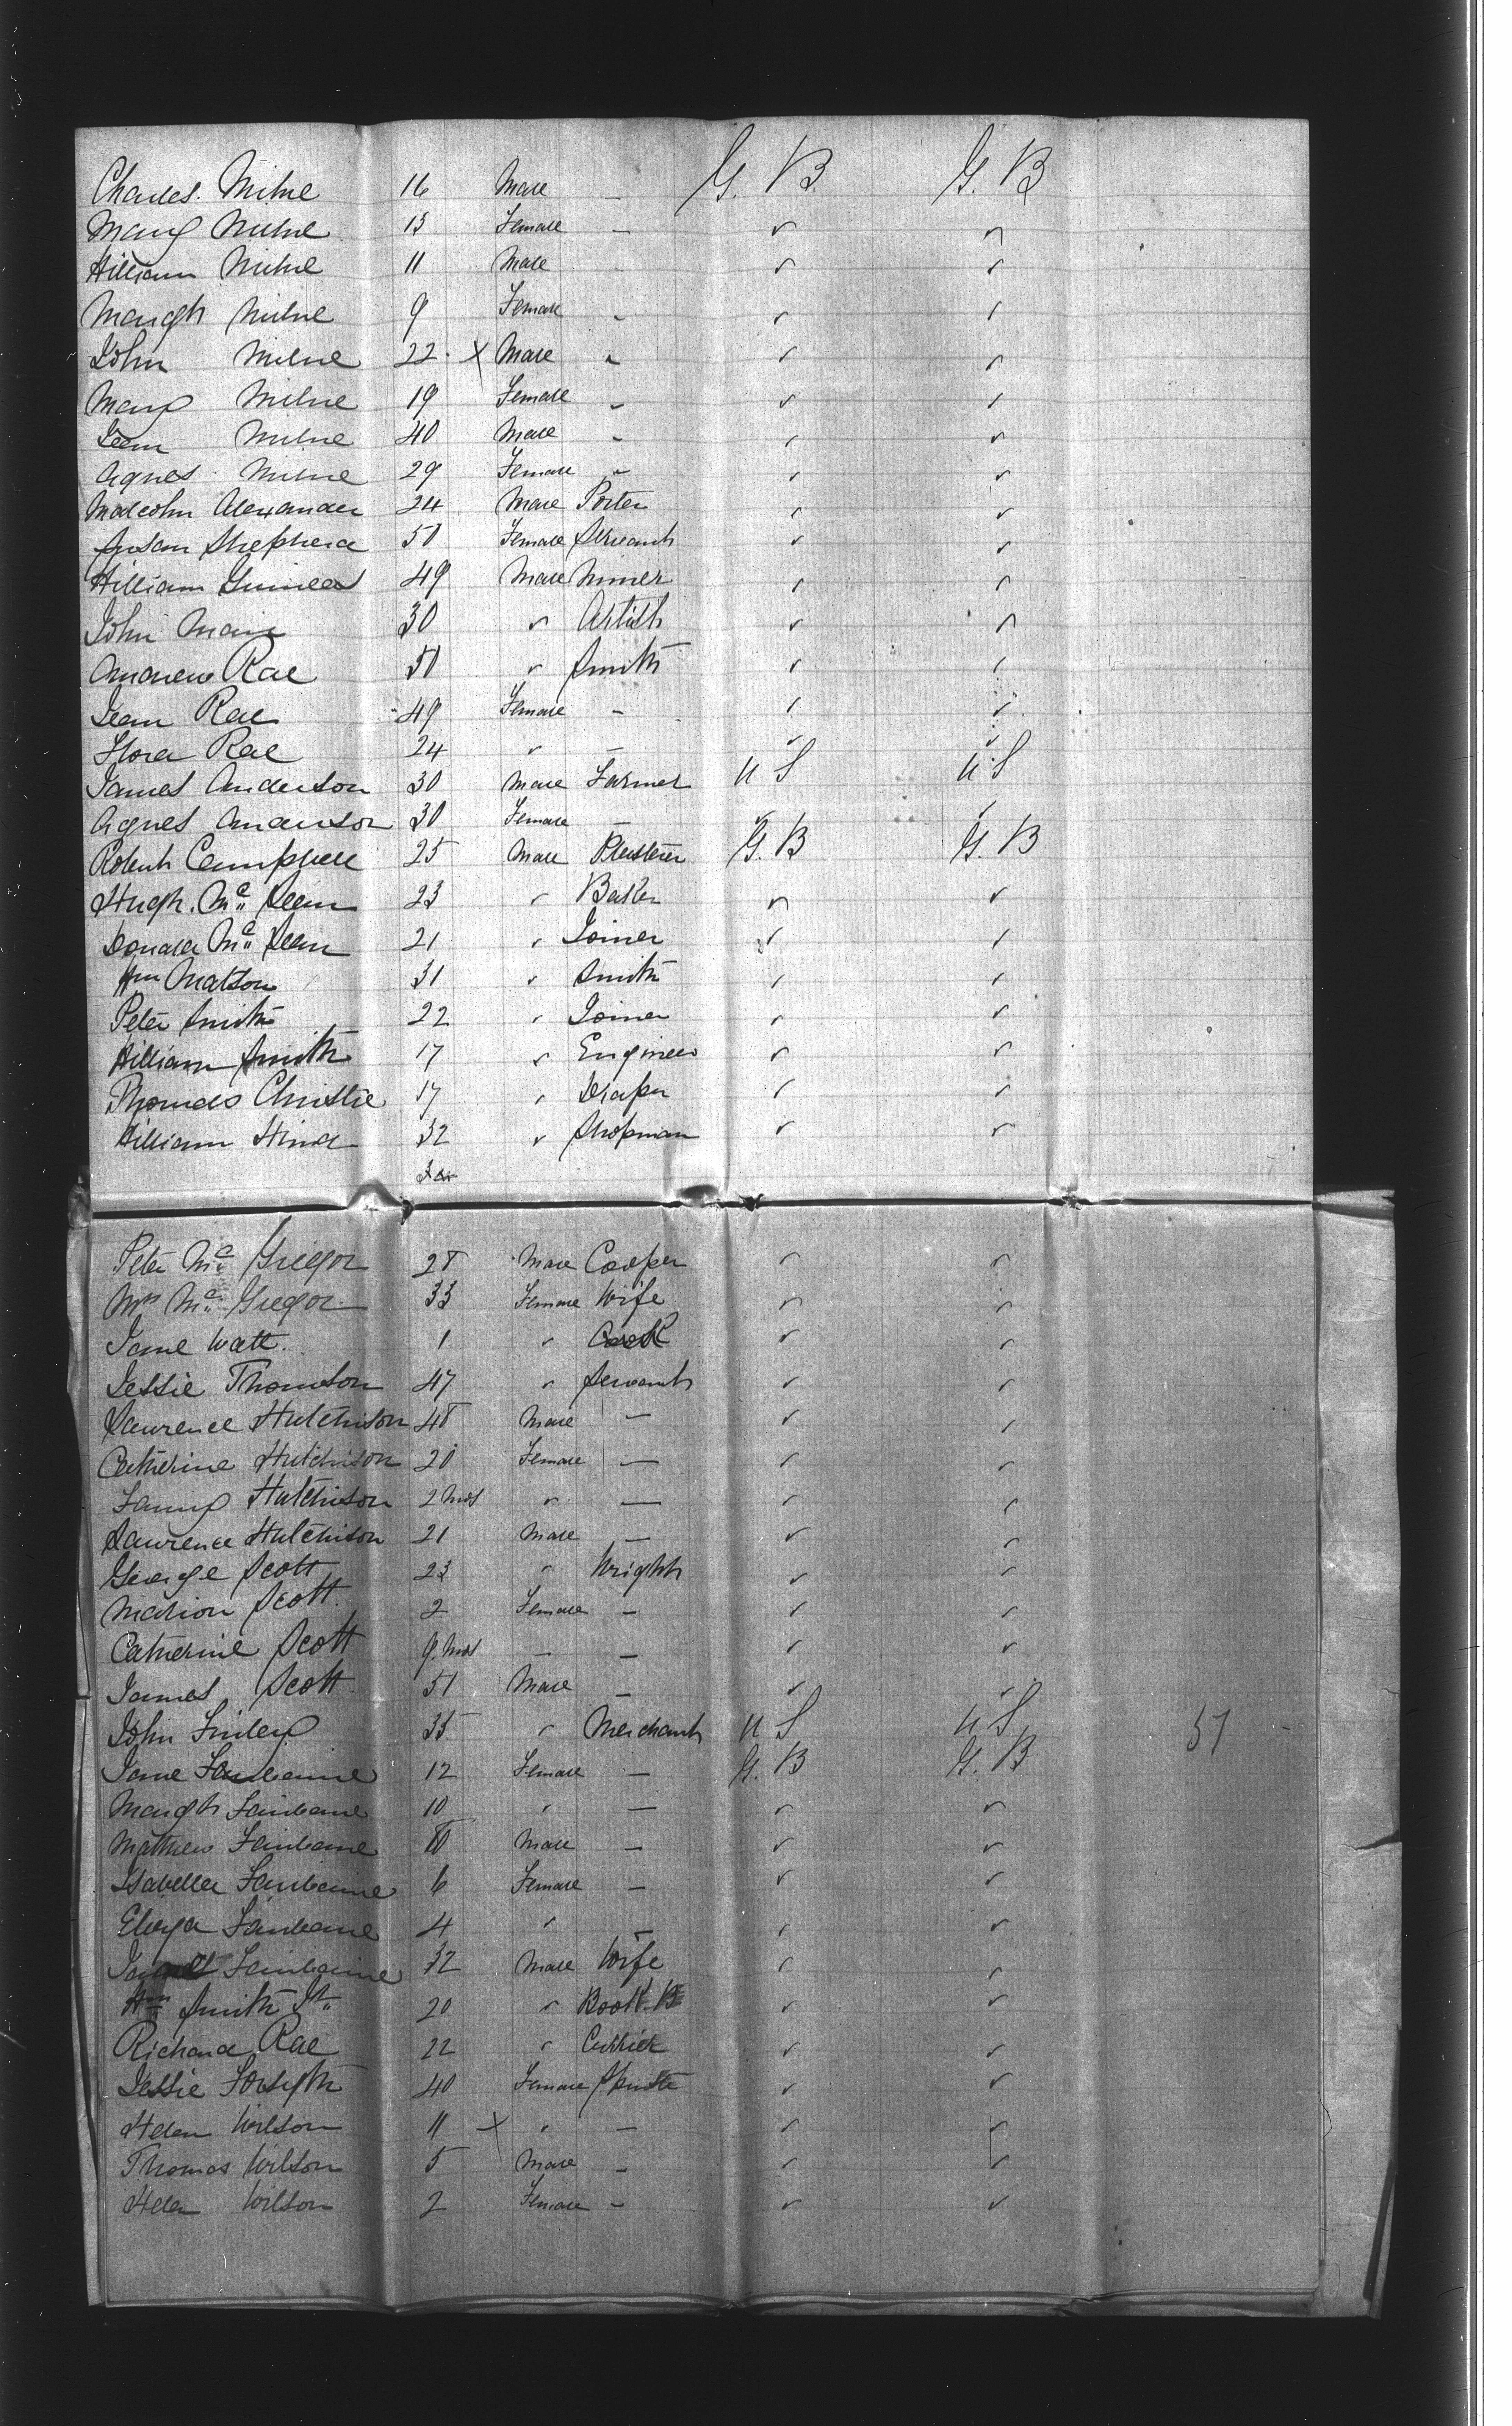 Charles Milne 16 Male — G. B. G. B
Mary Milne 13 Female — ✓ ✓
William Milne 11 Male - ✓ ✓
Margt Milne 9 Female - ✓ ✓
John Milne 22 X Male - ✓ ✓
Mary Milne 19 Female - ✓ ✓
Milne 40 Male - ✓ ✓
Agnes Milne 29 Female - ✓ ✓
Malcolm Alexander 24 Male Porter ✓ ✓
Susan Shepherd 50 Female Servant ✓ ✓
William 49 Male Miner ✓ ✓
John Mair 30 ✓ Artist ✓ ✓
Andrew Rae 50 ✓ Smith ✓ ✓
Jean Rae 49 Female — ✓ ✓
Flora Rae 24 ✓ — ✓ ✓
James Anderson 30 Male Farmer U S U S
Agnes Anderson 30 Female — ✓ ✓
Robert Campbell 25 Male Plasterer G. B G. B
Hugh Mc Lean 23 ✓ Baker ✓ ✓
Donald Mc Lean 21 ✓ Joiner ✓ ✓
Wm Watson 31 ✓ Smith ✓ ✓
Peter Smith 22 ✓ Joiner ✓ ✓
William Smith 17 ✓ Engineer ✓ ✓
Thomas Christie 17 ✓ Draper ✓ ✓
William Hind 32 ✓ Shopman ✓ ✓
Peter Mc Gregor 28 Male Cooper ✓ ✓
Mrs Mc Gregor 33 Female Wife ✓ ✓
Jane Watt 1 ✓ Cook ✓ ✓
Jessie Thomson 47 ✓ Servant ✓ ✓
Lawrence Hutchison 48 Male — ✓ ✓
Catherine Hutchison 20 Female — ✓ ✓
Fanny Hutchison 2 Mos ✓ — ✓ ✓
Lawrence Hutchison 21 Male — ✓ ✓
George Scott 23 ✓ Wright ✓ ✓
Marion Scott 2 Female — ✓ ✓
Catherine Scott 9 Mos — — ✓ ✓
James Scott 51 Male — ✓ ✓
John Finley 35 ✓ Merchant U S U S 51
Jane Fairbairne 12 Female — G. B G. B
Margt Fairbairne 10 ✓ — ✓ ✓
Mathew Fairbairne Male — ✓ ✓
Isabella Fairbairne 6 Female — ✓ ✓
Eliza Fairbairne 4 ✓ — ✓ ✓
Fairbairne 32 Male Wife ✓ ✓
Wm Smith 20 ✓ Book B ✓ ✓
Richard Rae 22 ✓ Currier ✓ ✓
Jessie Forsyth 40 Female ✓ ✓
Helen Wilson 11 X ✓ — ✓ ✓
Thomas Wilson 5 Male — ✓ ✓
Helen Wilson 2 Female — ✓ ✓